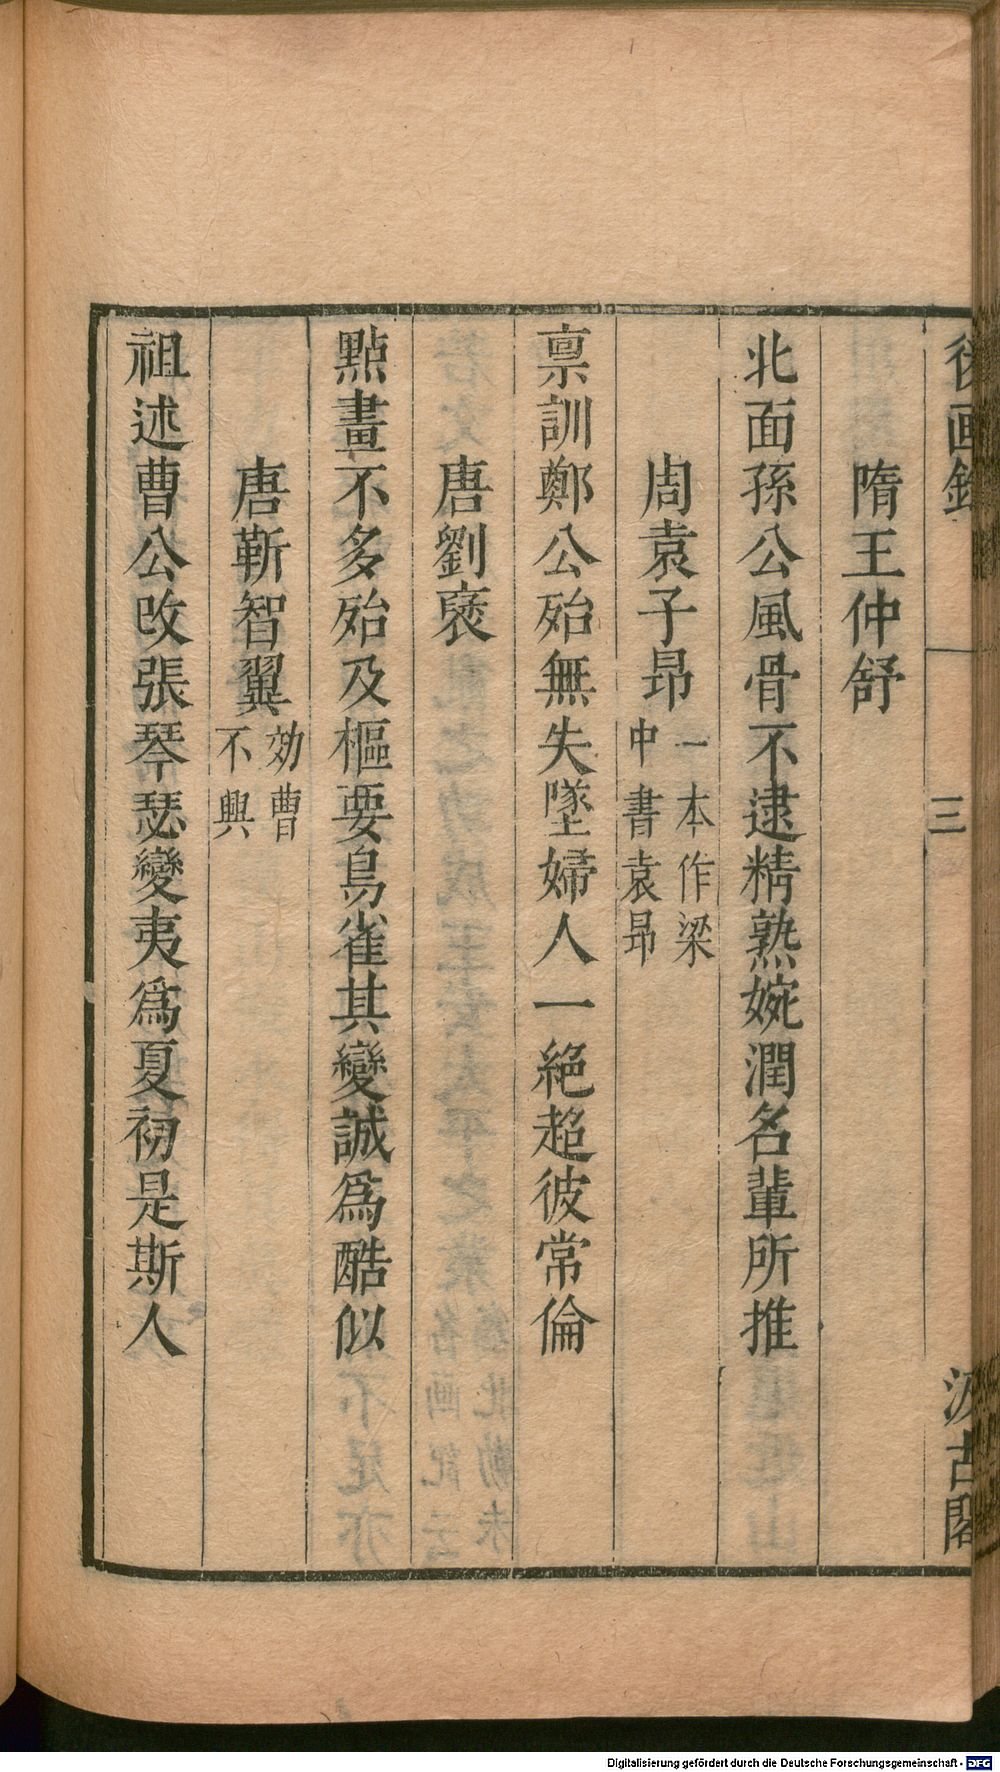 後画錄 三 汲古閣
隋王仲舒
北面孫公風骨不逮精熟婉潤名輩所推
周袁子昂一本作梁中書袁昂
禀訓鄭公殆無失墜婦人一絕超彼常倫
唐劉褎
點畫不多殆及樞要鳥雀其變誠爲酷似
唐靳智翼効曹不興
祖述曹公改張琴瑟變夷爲夏初是斯人
Digitalisierung gefördert durch die Deutsche Forschungsgemeinschaft - DFG